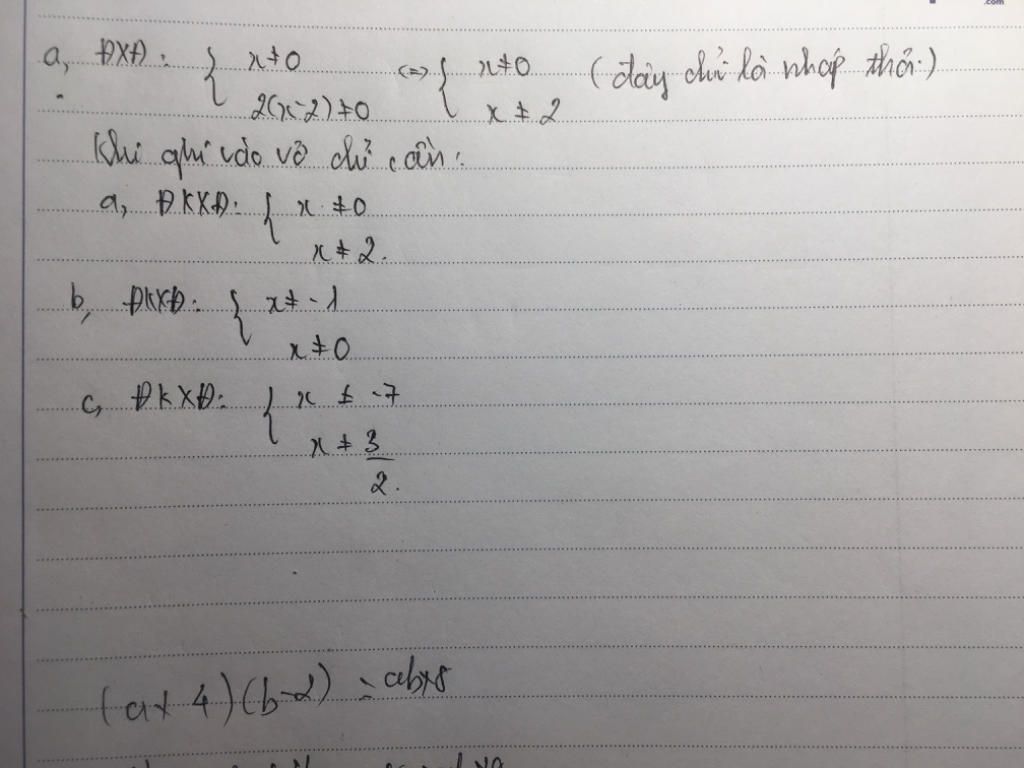 .com
a, ĐXĐ: { x ≠ 0 <=> { x ≠ 0 (đây chỉ là nháp thôi)
2(x-2) ≠ 0 x ≠ 2
Khi ghi vào vở chỉ cần:
a, ĐKXĐ: { x ≠ 0
x ≠ 2.
b, ĐKXĐ: { x ≠ -1
x ≠ 0
c, ĐKXĐ: { x ≠ -7
x ≠ 3
2.
(a+4)(b-2) = ab+8